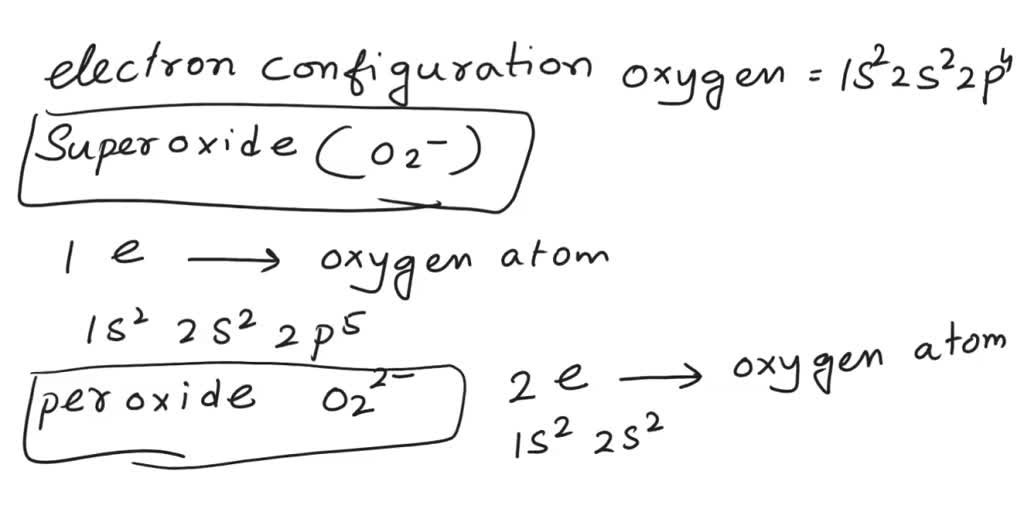 electron configuration oxygen = 1s²2s²2p⁴
Superoxide (O₂⁻)
1 e → oxygen atom
1s² 2s² 2p⁵
peroxide O₂²⁻
2 e → oxygen atom
1s² 2s²